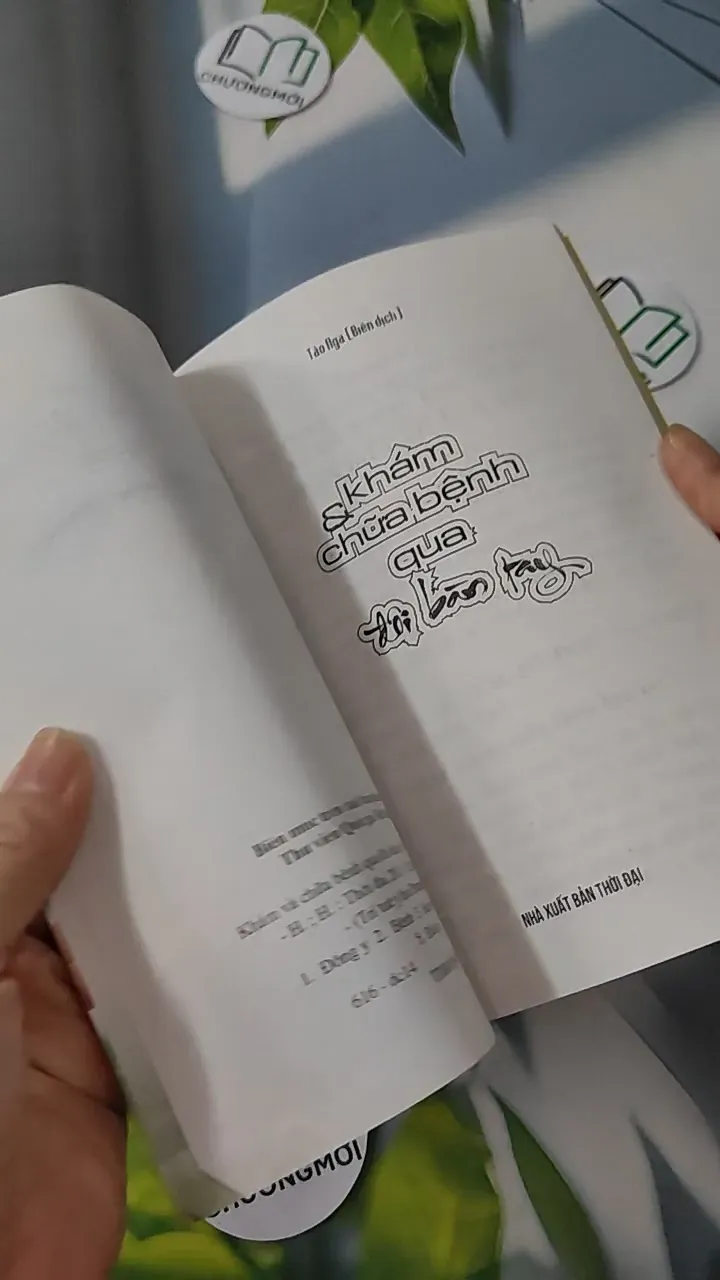 CHƯƠNGMỚI
Tào Nga (Biên dịch)
khám
& chữa bệnh
qua
đôi bàn tay
NHÀ XUẤT BẢN THỜI ĐẠI
Biên mục trên
Thư viện Quốc
Khám và chữa bệnh qua
- H. : H. : Thời đại
1. Đông y 2.
616 - dc14
CHƯƠNGMỚI